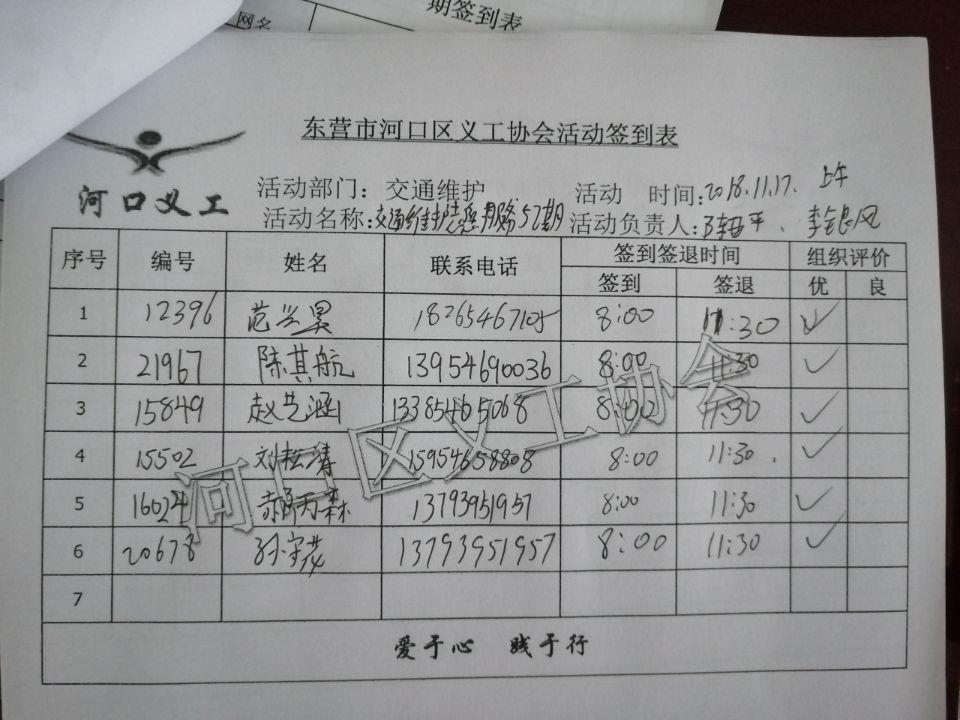 网名
期签到表
东营市河口区义工协会活动签到表
河口义工
活动部门：交通维护 活动 时间:2018.11.17. 上午
活动名称:交通维护志愿服务57期 活动负责人: 李银风
序号 编号 姓名 联系电话 签到签退时间 组织评价
签到 签退 优 良
1 12396 范兴昊 18265467105 8:00 11:30 ✓
2 21967 陈其航 13954690036 8:00 11:30 ✓
3 15849 赵艺涵 13385465068 8:00 11:30 ✓
4 15502 刘桂涛 15954658808 8:00 11:30. ✓
5 16024 郝丙森 13793951957 8:00 11:30 ✓
6 20678 孙守花 13793951957 8:00 11:30 ✓
7
爱于心 践于行
河口区义工协会